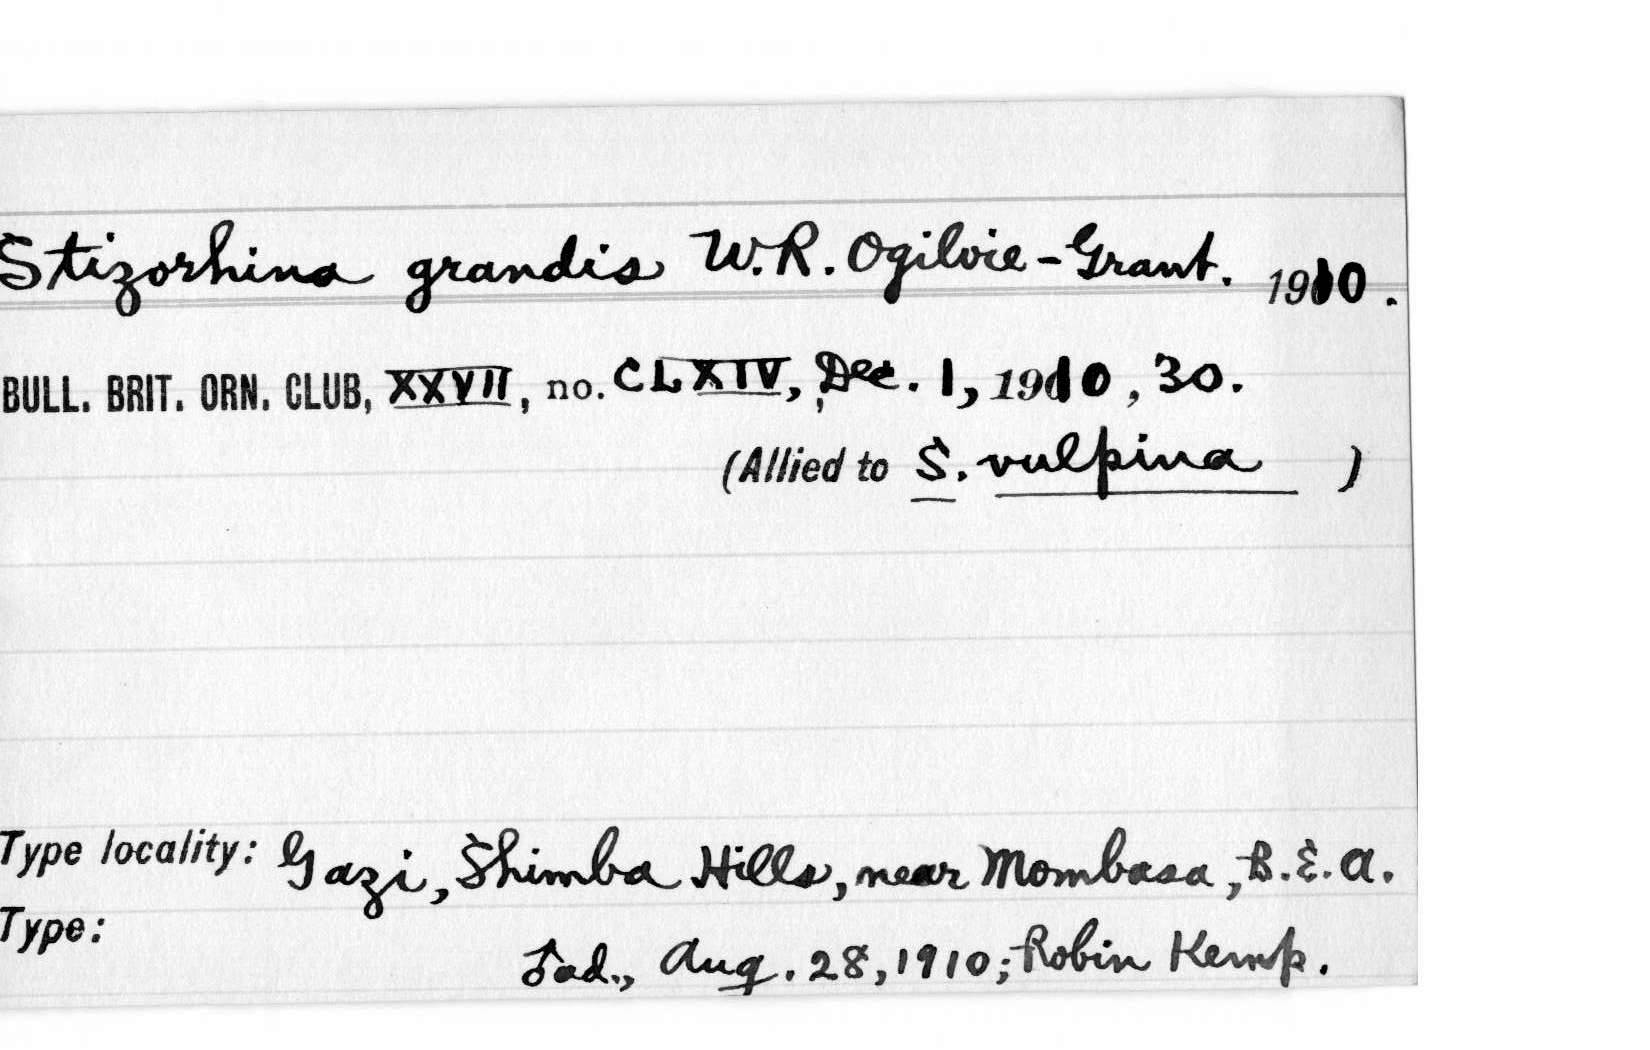 Stizorhina grandis W.R. Ogilvie-Grant. 1910.
BULL. BRIT. ORN. CLUB, XXVII, no. CLXIV, Dec. 1, 1910, 30.
(Allied to S. vulpina )
Type locality: Gazi, Shimba Hills, near Mombasa, B.E.A.
Type:
♂ad., Aug. 28, 1910; Robin Kemp.